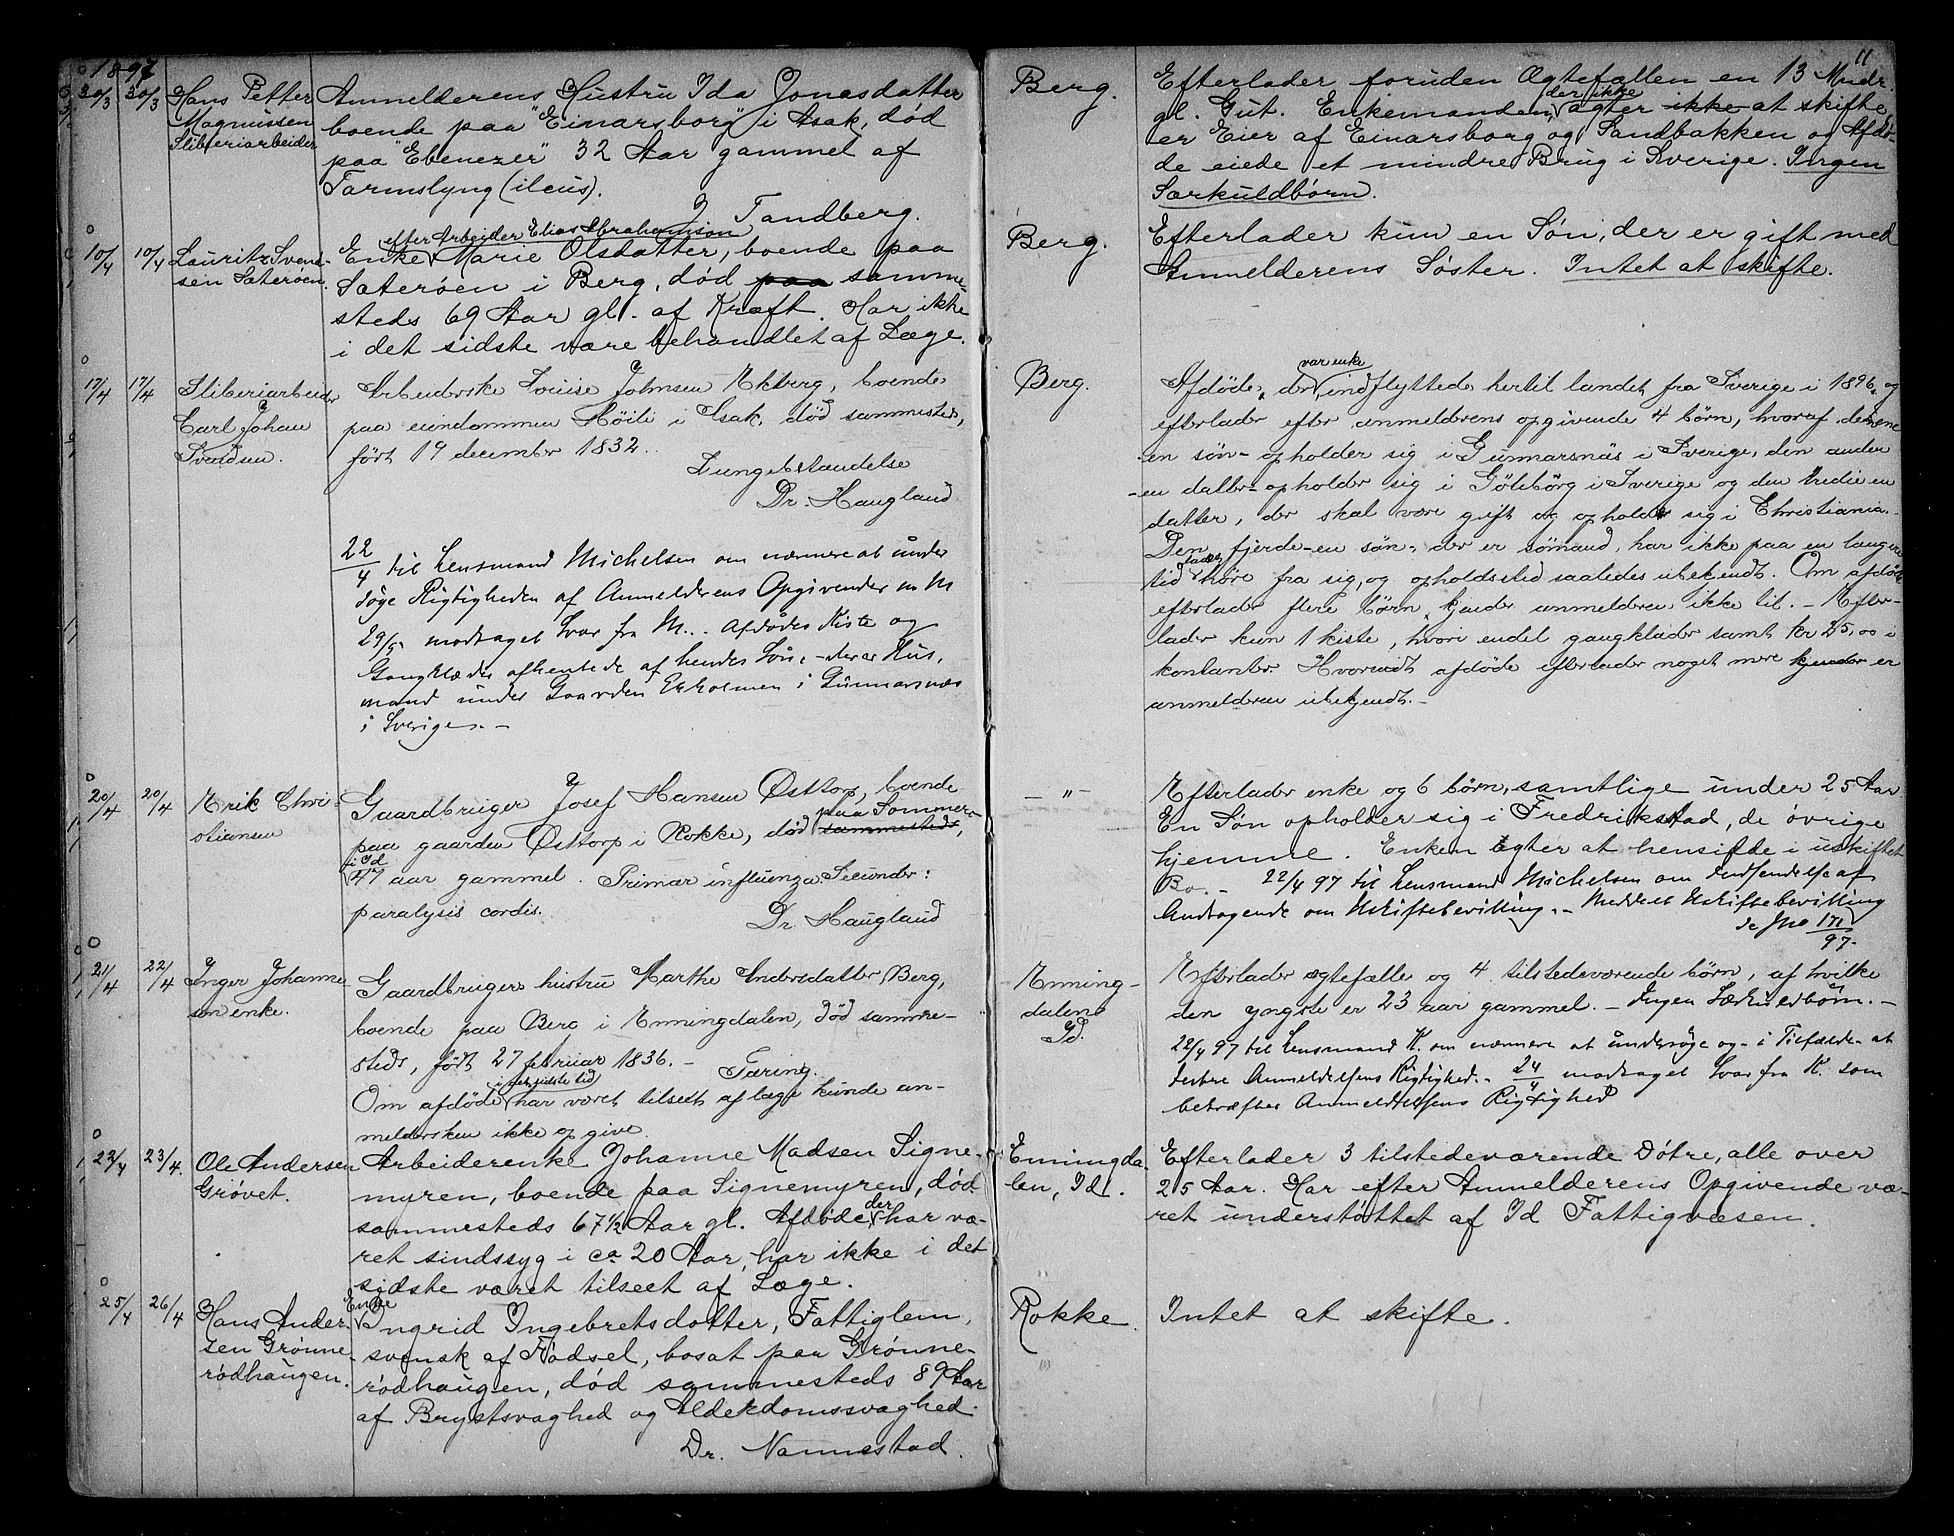 11
1897
30/3 30/3 Hans Petter
Magnussen
Sliberiarbeider
Anmelderens Hustru Ida Jonasdatter
boende paa "Einarsborg" i Asak, død
paa "Ebenezer" 32 Aar gammel af
Tarmslyng (ileus).
J Tandberg.
Berg.
Efterlader foruden Ægtefællen en 13 Mndr.
gl. Gut. Enkemanden, der ikke agter ikke at skifte
er Eier af Einarsborg og Sandbakken og Afdø-
de eiede et mindre Brug i Sverige. Ingen
Særkuldbørn.
10/4 10/4 Lauritz Svend-
sen Sæterøen.
efter Arbeider Elias Abrahamson
Enke Marie Olsdatter, boende paa
Sæterøen i Berg, død paa samme-
steds 69 Aar gl. af Kræft. Har ikke
i det sidste være behandlet af Læge.
Berg.
Efterlader kun en Søn, der er gift med
Anmelderens Søster. Intet at skifte.
17/4 17/4 Sliberiarbeider
Carl Johan
Svendsen.
Arbeiderske Lovise Johnsen Ekberg, boende
paa eiendommen Høili i Asak, død sammesteds,
født 19 december 1832.
Lungebetændelse
Dr. Haugland
22/4 til Lensmand Michelsen om nærmere at under
søge Rigtigheden af Anmelderens Opgivender m M
29/5 modtaget Svar fra M... Afdødes Kiste og
Gangklæder afhentede af hendes Søn, - der er Hus,
mand under Gaarden Ekholmen i Gunnarsnæs
i Sverige. -
Berg.
var enke
Afdøde, der indflyttede hertil landet fra Sverige i 1896, og
efterlader efter anmelderens opgivende 4 børn, hvoraf den ene
- en søn - opholder sig i Gunnarsnäs i Sverige, den anden
- en datter - opholder sig i Göteborg i Sverige og den tredie en
datter, der skal være gift og opholder sig i Christiania.
Den fjerde - en søn, der er sømand, har ikke paa en længere
tid ladet høre fra sig, og opholdssted saaledes ubekjendt. Om afdøde
efterlader flere børn, kjender anmelderen ikke til. - Efter-
lader kun 1 kiste, hvori endel gangklæder samt kr 25,00 i
kontanter. Hvorvidt afdøde efterlader noget mere kjender er
anmelderen ubekjendt. -
20/4 20/4 Erik Chri-
stiansen
Gaardbruger Josef Hansen Østtorp, boende
paa gaarden Østtorp i Rokke, død paa Sommero sammesteds,
i Id
47 aar gammel. Primær influenza. Secundær:
paralysis cordis.
Dr. Haugland
- " -
Efterlader enke og 6 børn, samtlige under 25 Aar
En Søn opholder sig i Fredrikstad, de øvrige
hjemme. Enken agter at hensidde i uskiftet
Bo. - 22/4 97 til Lensmand Michelsen om Indsendelse af
Andragende om Uskiftebevilling. - Meddelt Uskiftebevilling
se Jno 171/97.
21/4 22/4 Inger Johanne
sen enke.
Gaardbruger hustru Marthe Andersdatter Berg,
boende paa Berg i Enningdalen, død samme-
steds, født 27 februar 1836. - Tæring.
Om afdøde i den sidste tid har været tilseet af læge kunde an-
meldersken ikke opgive.
Enning-
dalen
Id.
Efterlader ægtefælle og 4 tilstedeværende børn, af hvilke
den yngste er 23 aar gammel. - Ingen Særkuldbørn. -
22/4 97 til Lensmand K. om nærmere at undersøge og - i Tilfælde - at
testere Anmeldelsens Rigtighed. - 24/4 modtaget Svar fra K. som
bekræfter Anmeldelsens Rigtighed
22/4 23/4. Ole Andersen
Grøvet.
Arbeiderenke Johanne Madsen Signe-
myren, boende paa Signemyren, død
sammesteds 67½ Aar gl. Afdøde, der har væ-
ret sindssyg i ca 20 Aar, har ikke i det
sidste været tilseet af Læge.
Enningda-
len, Id.
Efterlader 3 tilstedeværende Døtre, alle over
25 Aar. Har efter Anmelderens Opgivende væ-
ret understøttet af Id Fattigvæsen.
25/4 26/4 Hans Ander-
sen Grønne-
rødhaugen.
Enke
Ingrid Ingebretsdotter, Fattiglem,
svensk af Fødsel, bosat paa Grønne-
rødhaugen, død sammesteds 89 Aar
af Brystsvaghed og Alderdomssvaghed.
Dr. Nannestad.
Rokke.
Intet at skifte.